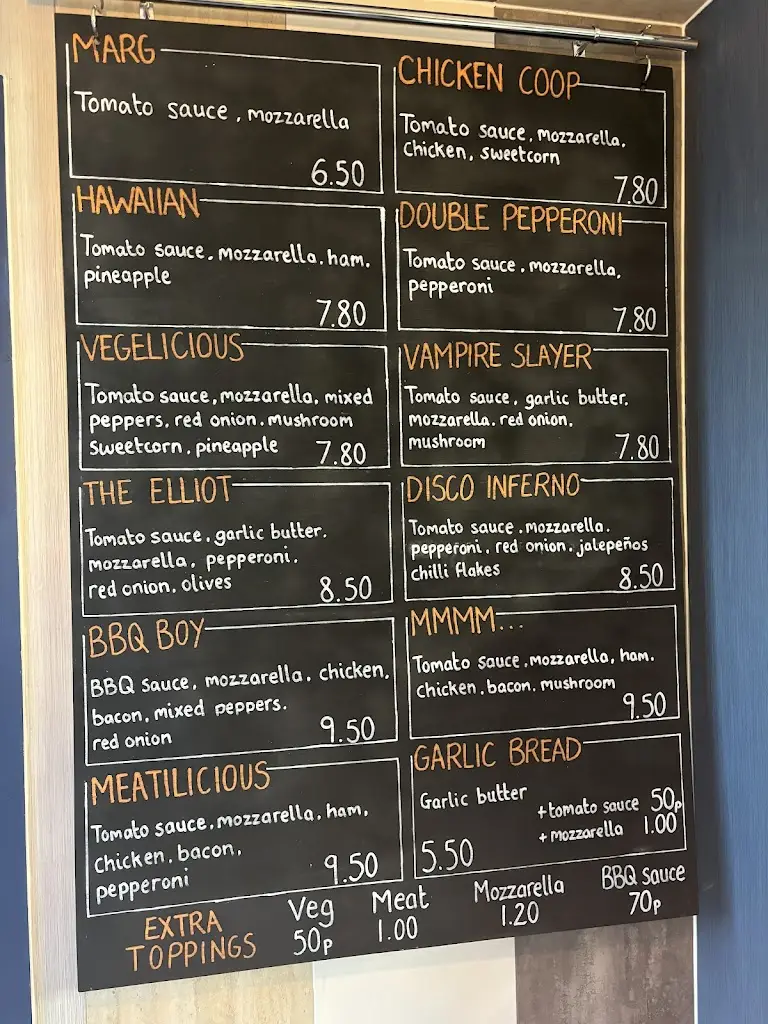 MARG
Tomato sauce, mozzarella
6.50
CHICKEN COOP
Tomato sauce, mozzarella,
Chicken, sweetcorn
7.80
HAWAIIAN
Tomato sauce, mozzarella, ham,
pineapple
7.80
DOUBLE PEPPERONI
Tomato sauce, mozzarella,
pepperoni
7.80
VEGELICIOUS
Tomato sauce, mozzarella, mixed
peppers, red onion, mushroom
sweetcorn, pineapple 7.80
VAMPIRE SLAYER
Tomato sauce, garlic butter,
mozzarella, red onion,
mushroom 7.80
THE ELLIOT
Tomato sauce, garlic butter,
mozzarella, pepperoni,
red onion, olives 8.50
DISCO INFERNO
Tomato sauce, mozzarella,
pepperoni, red onion, jalepeños
chilli flakes 8.50
BBQ BOY
BBQ sauce, mozzarella, chicken,
bacon, mixed peppers,
red onion 9.50
MMMM...
Tomato sauce, mozzarella, ham,
chicken, bacon, mushroom
9.50
MEATILICIOUS
Tomato sauce, mozzarella, ham,
Chicken, bacon,
pepperoni 9.50
GARLIC BREAD
Garlic butter
+tomato sauce 50p
+mozzarella 1.00
5.50
EXTRA
TOPPINGS
Veg
50p
Meat
1.00
Mozzarella
1.20
BBQ Sauce
70p